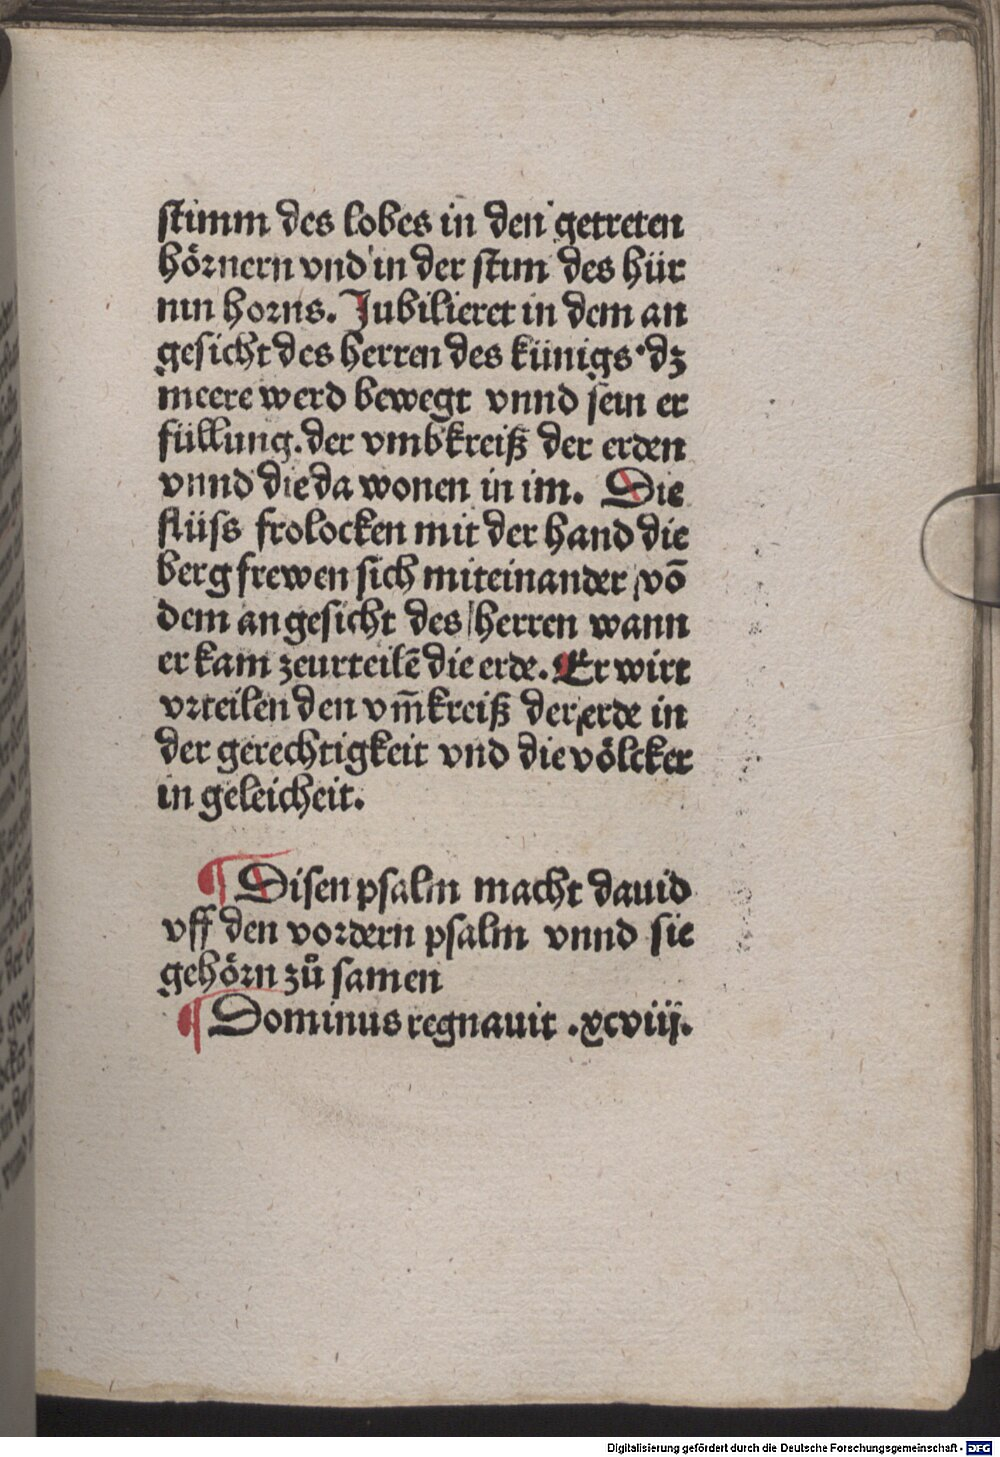 stimm des lobes in den getreten
hörnern vnd in der stim des hür
nin horns. Jubilieret in dem an
gesicht des herren des künigs·dz
meere werd bewegt vnnd sein er
füllung.der vmbkreiß der erden
vnnd die da wonen in im. Die
flüss frolocken mit der hand die
berg frewen sich miteinander võ
dem angesicht des herren wann
er kam zeurteilẽ die erde. Er wirt
vrteilen den vm̃kreiß der erde in
der gerechtigkeit vnd die völcker
in geleicheit.
¶ Disen psalm macht dauid
vff den vordern psalm vnnd sie
gehörn zů samen
¶ Dominus regnauit .xcviij.
Digitalisierung gefördert durch die Deutsche Forschungsgemeinschaft - DFG